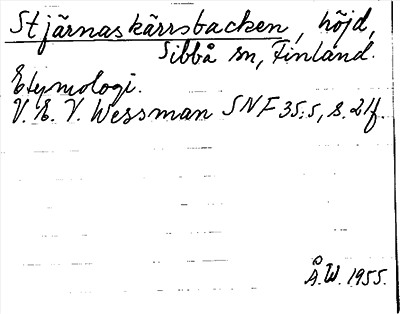 Stjärnaskärrsbacken, höjd,
Sibbå sn, Finland.
Etymologi.
V. E. V. Wessman SNF 35:5, s. 21f.
Å.W. 1955.